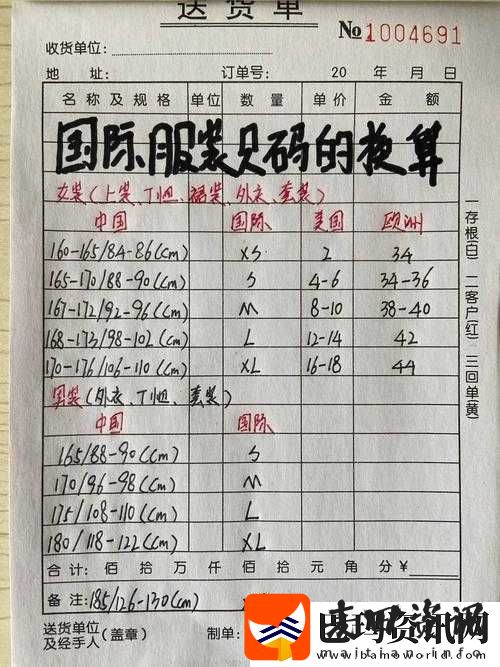 送货单
№1004691
收货单位:
地 址: 订单号: 20 年 月 日
名称及规格 单位 数量 单价 金额
国际服装尺码的换算
女装(上装、T恤、裙装、外衣、套装)
中国 国际 美国 欧洲
160-165/84-86(cm) XS 2 34
165-170/88-90(cm) S 4-6 34-36
167-172/92-96(cm) M 8-10 38-40
168-173/98-102(cm) L 12-14 42
170-176/106-110(cm) XL 16-18 44
男装(外衣、T恤、套装)
中国 国际
165/88-90(cm) S
170/96-98(cm) M
175/108-110(cm) L
180/118-122(cm) XL
合计: 佰 拾 万 仟 佰 拾 元 角 分 ¥
备 注: 185/126-130(cm)
送货单位
及经手人(盖章) 制单:
一存根(白) 二客户(红) 三回单(黄)
医码资讯网
www.bamaworld.com